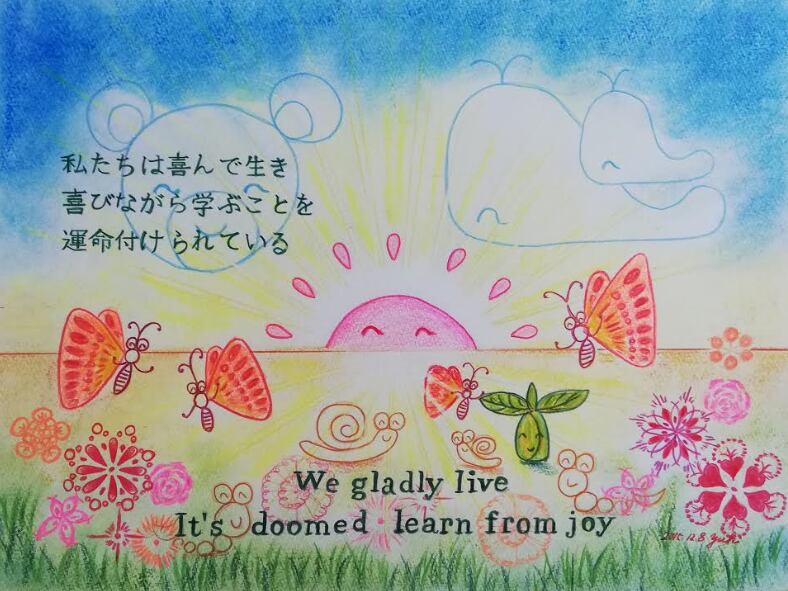 私たちは喜んで生き
喜びながら学ぶことを
運命付けられている
We gladly live
It's doomed learn from joy